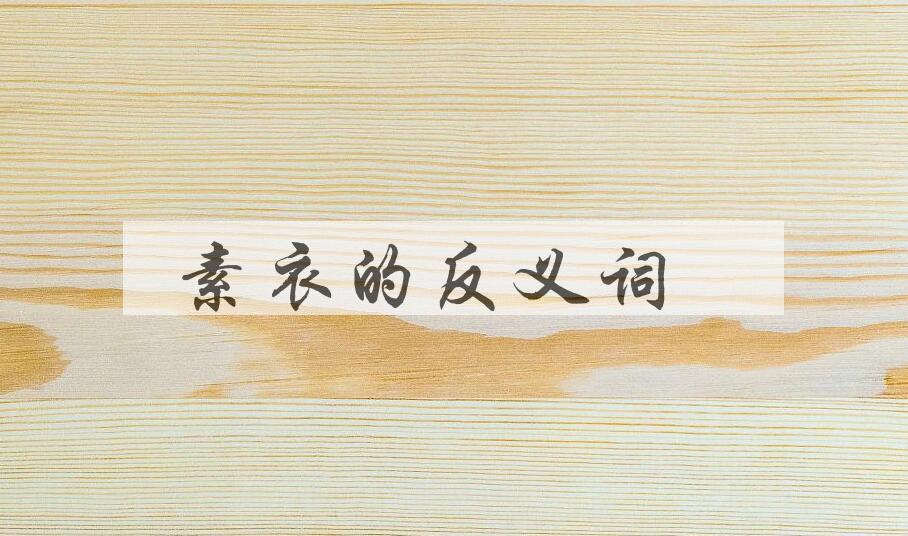 素衣的反义词